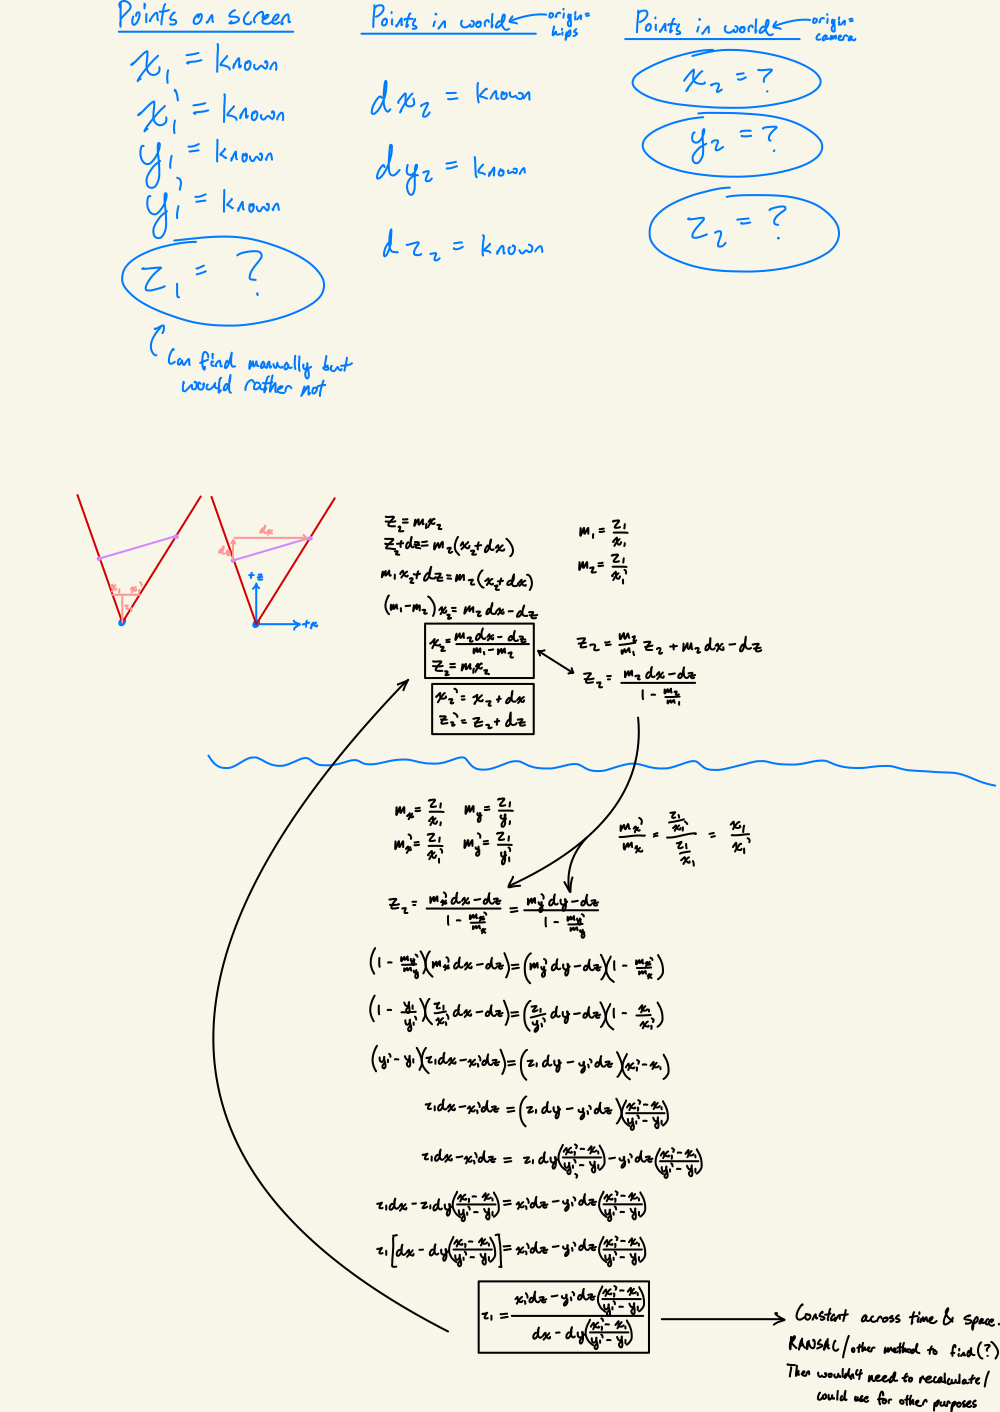 Points on screen
x₁ = known
x₁' = known
y₁ = known
y₁' = known
z₁ = ?
Can find manually but
would rather not
Points in world ← origin = hips
dx₂ = known
dy₂ = known
dz₂ = known
Points in world ← origin = camera
x₂ = ?
y₂ = ?
z₂ = ?
x₁ x₁'
z₁
dx
dz
+z
+x
z₂ = m₁x₂
z₂+dz = m₂(x₂+dx)
m₁x₂+dz = m₂(x₂+dx)
(m₁-m₂)x₂ = m₂dx-dz
x₂ = (m₂dx-dz)/(m₁-m₂)
z₂ = m₁x₂
x₂' = x₂+dx
z₂' = z₂+dz
m₁ = z₁/x₁
m₂ = z₁/x₁'
z₂ = m₂/m₁ z₂ + m₂dx-dz
z₂ = (m₂dx-dz)/(1 - m₂/m₁)
mₓ = z₁/x₁ m_y = z₁/y₁
mₓ' = z₁/x₁' m_y' = z₁/y₁'
mₓ'/mₓ = (z₁/x₁')/(z₁/x₁) = x₁/x₁'
z₂ = (mₓ'dx-dz)/(1 - mₓ'/mₓ) = (m_y'dy-dz)/(1 - m_y'/m_y)
(1 - m_y'/m_y)(mₓ'dx-dz) = (m_y'dy-dz)(1 - mₓ'/mₓ)
(1 - y₁/y₁')(z₁/x₁' dx-dz) = (z₁/y₁' dy-dz)(1 - x₁/x₁')
(y₁'-y₁)(z₁dx-x₁'dz) = (z₁dy-y₁'dz)(x₁'-x₁)
z₁dx-x₁'dz = (z₁dy-y₁'dz)((x₁'-x₁)/(y₁'-y₁))
z₁dx-x₁'dz = z₁dy((x₁'-x₁)/(y₁'-y₁))-y₁'dz((x₁'-x₁)/(y₁'-y₁))
z₁dx-z₁dy((x₁'-x₁)/(y₁'-y₁)) = x₁'dz-y₁'dz((x₁'-x₁)/(y₁'-y₁))
z₁[dx-dy((x₁'-x₁)/(y₁'-y₁))] = x₁'dz-y₁'dz((x₁'-x₁)/(y₁'-y₁))
z₁ = (x₁'dz-y₁'dz((x₁'-x₁)/(y₁'-y₁)))/(dx-dy((x₁'-x₁)/(y₁'-y₁)))
Constant across time & space.
RANSAC/other method to find(?)
Then wouldn't need to recalculate/
could use for other purposes